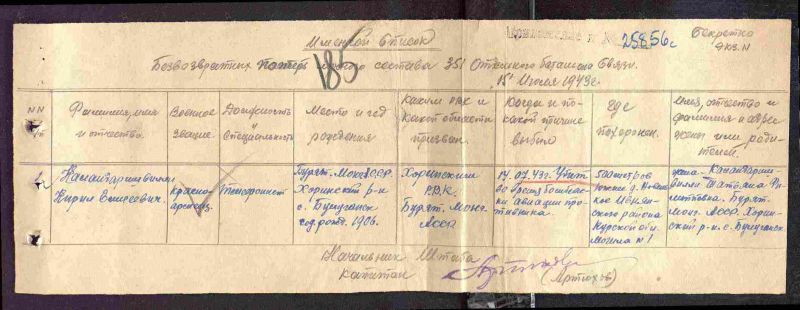 Именной список
№ 25856с
Секретно
экз. N
Безвозвратных потерь личного состава 351 Отдельного батальона связи.
185
15 Июля 1943 г.
NN
Фамилия, имя и отчество.
Военное звание.
Должность и специальность
Место и год рождения
Каким РВК и какой области призван.
Когда и по какой причине выбыл
Где похоронен.
Имя, отчество и фамилия и адрес жены или родителей.
Кирил
красноармеец.
Телефонист
Бурят. Монг. АССР. Хоринский р-н с. год рожд. 1906.
Хоринским РВК. Бурят. Монг. АССР
14.07.43г. Убит во время бомбежки авиации противника.
500 метров южнее района Курской обл. Могила N 1
жена - Татьяна Бурят. Монг. АССР. Хоринский р-н. с.
Начальник Штаба
капитан
(Артюхов)